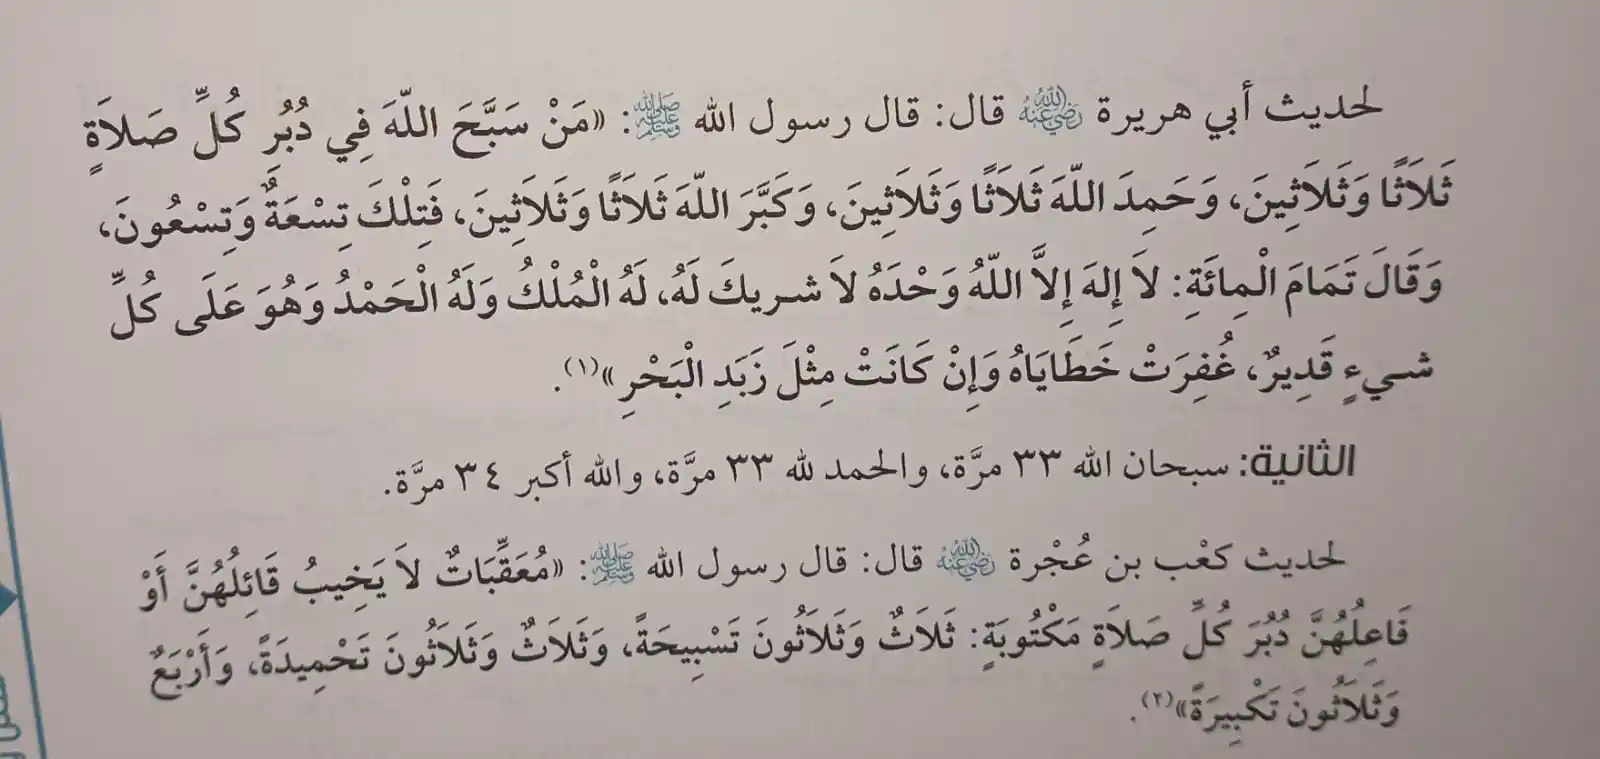 لحديث أبي هريرة رضي الله عنه قال: قال رسول الله ﷺ: «مَنْ سَبَّحَ اللّهَ فِي دُبُرِ كُلِّ صَلاَةٍ
ثَلاَثًا وَثَلاَثِينَ، وَحَمِدَ اللّهَ ثَلاَثًا وَثَلاَثِينَ، وَكَبَّرَ اللّهَ ثَلاَثًا وَثَلاَثِينَ، فَتِلْكَ تِسْعَةٌ وَتِسْعُونَ،
وَقَالَ تَمَامَ الْمِائَةِ: لاَ إِلهَ إِلاَّ اللّهُ وَحْدَهُ لاَ شريكَ لَهُ، لَهُ الْمُلْكُ وَلَهُ الْحَمْدُ وَهُوَ عَلَى كُلِّ
شيءٍ قَدِيرٌ، غُفِرَتْ خَطَايَاهُ وَإِنْ كَانَتْ مِثْلَ زَبَدِ الْبَحْرِ»(١).
الثانية: سبحان الله ٣٣ مرَّة، والحمد لله ٣٣ مرَّة، والله أكبر ٣٤ مرَّة.
لحديث كعْب بن عُجْرة رضي الله عنه قال: قال رسول الله ﷺ: «مُعَقِّبَاتٌ لاَ يَخِيبُ قَائِلُهُنَّ أَوْ
فَاعِلُهُنَّ دُبُرَ كُلِّ صَلاَةٍ مَكْتُوبَةٍ: ثَلاَثٌ وَثَلاَثُونَ تَسْبِيحَةً، وَثَلاَثٌ وَثَلاَثُونَ تَحْمِيدَةً، وَأَرْبَعٌ
وَثَلاَثُونَ تَكْبِيرَةً»(٢).